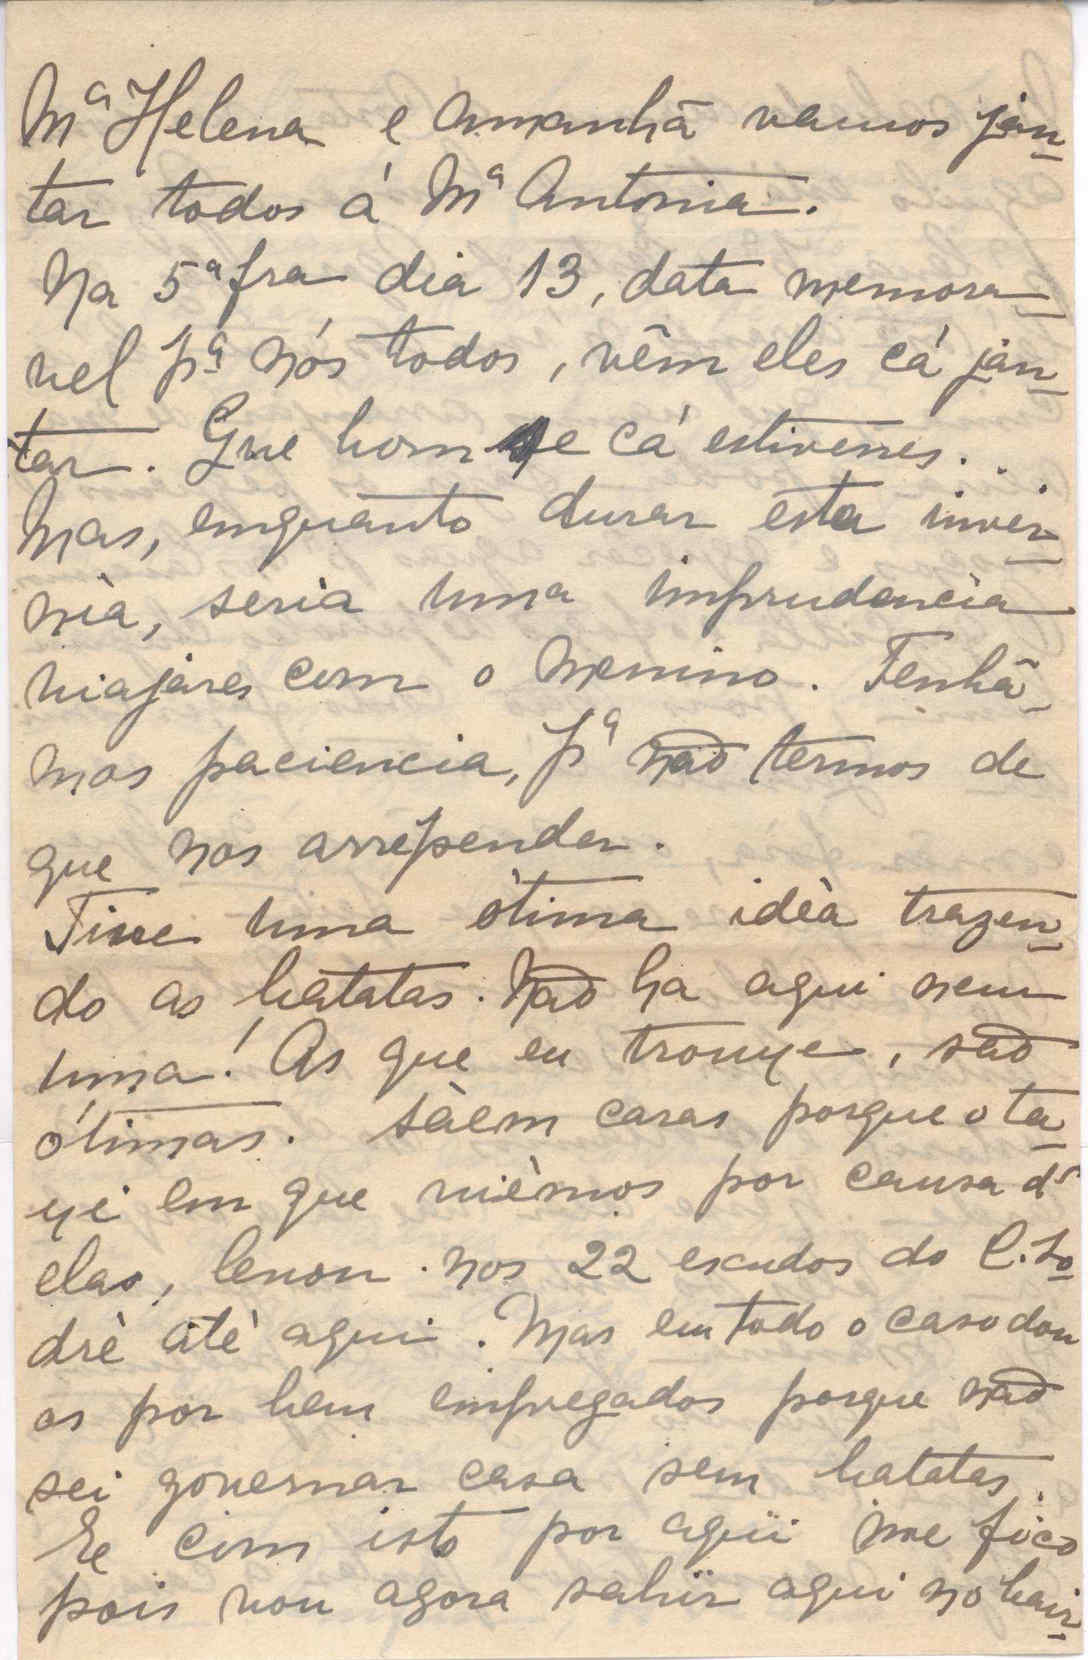 Mª Helena e amanhã vamos jan-
tar todos á Mª Antonia.
Na 5ª fra dia 13, data memora-
vel pª nós todos, vêm eles cá jan-
tar. Que bom se cá estivesses..
Mas, emquanto durar esta inver-
nia, seria uma imprudencia
viajares com o menino. Tenhã-
mos paciencia, pª não termos de
que nos arrepender.
Tive uma òtima idèa trazen-
do as batatas. Não ha aqui nem
uma! As que eu trouxe, são
ótimas. Sàem caras porque o ta-
xi em que vièmos por causa d'
elas, levou-nos 22 escudos do C. So-
drè atè aqui. Mas em todo o caso dou
os por bem empregados porque não
sei governar casa sem batatas.
E com isto por aqui me fico
pois vou agora sahir aqui no bair-